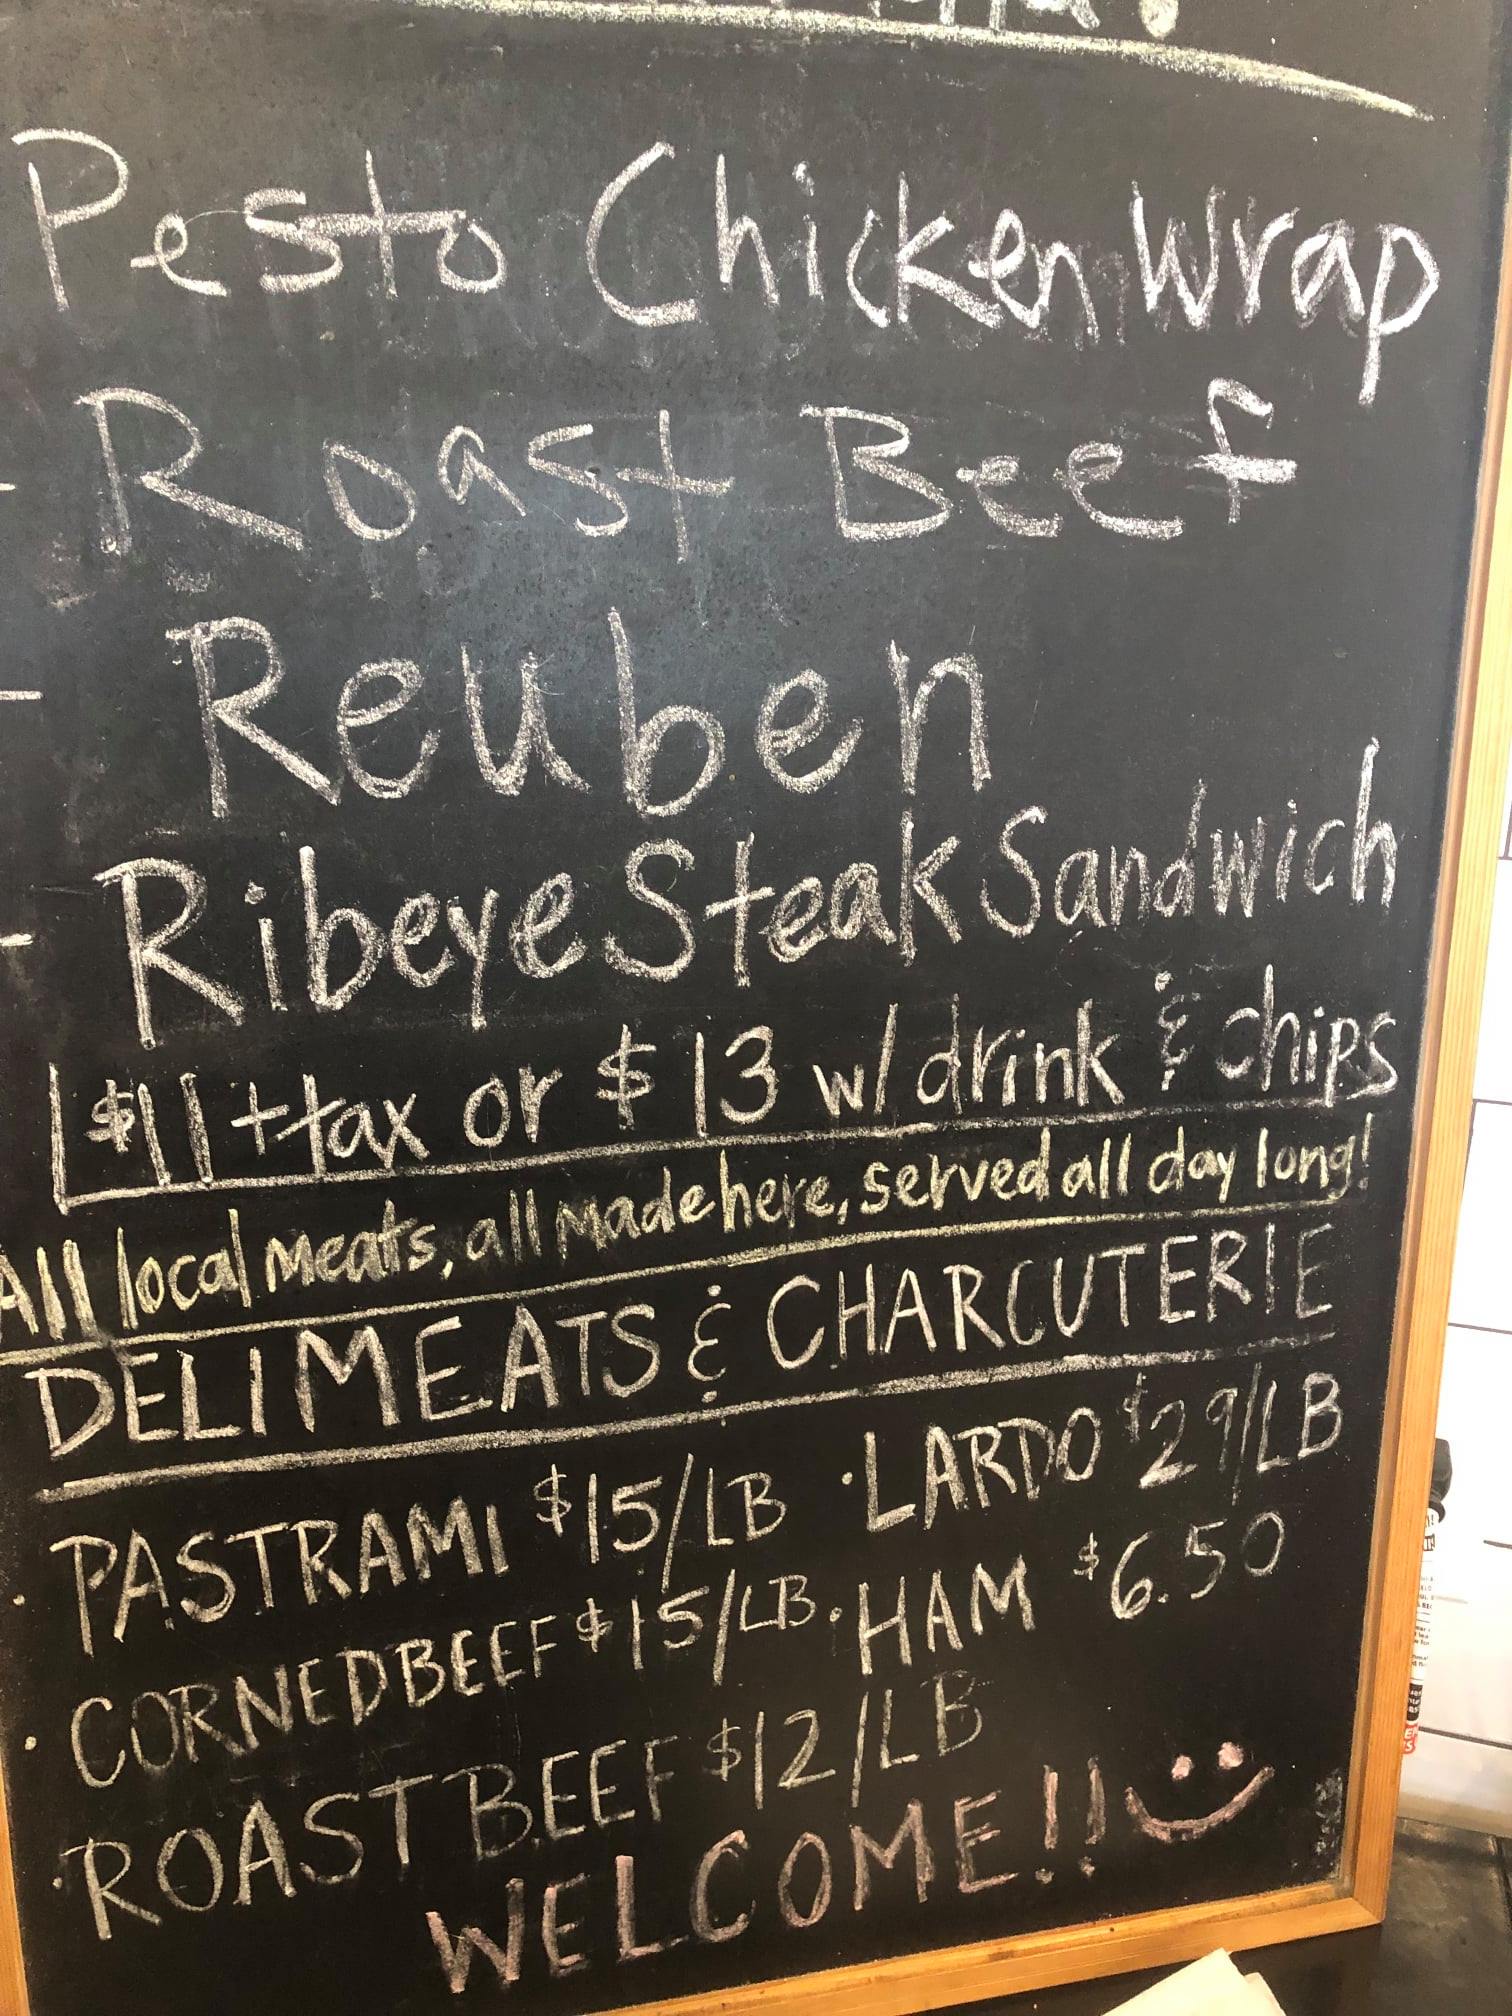 Pesto Chicken Wrap
- Roast Beef
- Reuben
- Ribeye Steak Sandwich
$11 + tax or $13 w/ drink & chips
All local meats, all made here, served all day long!
DELI MEATS & CHARCUTERIE
· PASTRAMI $15/LB · LARDO $29/LB
· CORNED BEEF $15/LB · HAM $6.50
· ROAST BEEF $12/LB
WELCOME!!